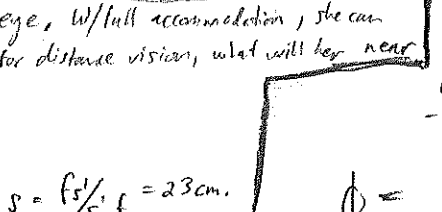 eye. W/full accommodation, she can
for distance vision, what will her near
s = fs'/s'-f = 23cm.
ϕ =